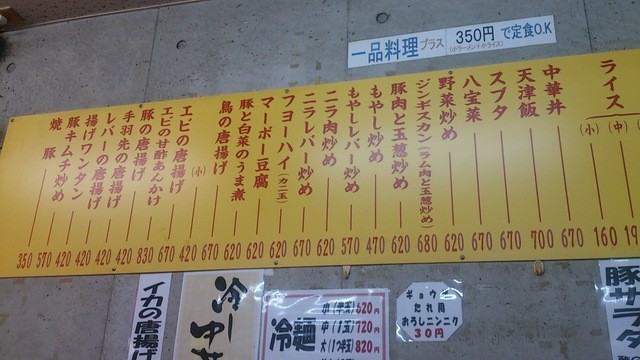 一品料理プラス 350円 で定食O.K
(小ラーメン+小ライス)
ライス (小) 160
(中) 19
中華丼 670
天津飯 700
スブタ 670
八宝菜 670
野菜炒め 620
ジンギスカン(ラム肉と玉葱炒め) 680
豚肉と玉葱炒め 620
もやし炒め 470
もやしレバー炒め 570
ニラ肉炒め 620
ニラレバー炒め 670
フヨーハイ(カニ玉) 620
マーボー豆腐 620
豚と白菜のうま煮 620
鳥の唐揚げ 670
(小) 420
エビの唐揚げ 670
エビの甘酢あんかけ 830
豚の唐揚げ 420
手羽先の唐揚げ 420
レバーの唐揚げ 420
揚げワンタン 420
豚キムチ炒め 570
焼豚 350
豚サラダ
ギョウザ
たれ用
おろしニンニク
30円
冷麺
小(半玉)620円
中(1玉)720円
大(1つ半玉)820円
冷し中華
イカの唐揚げ